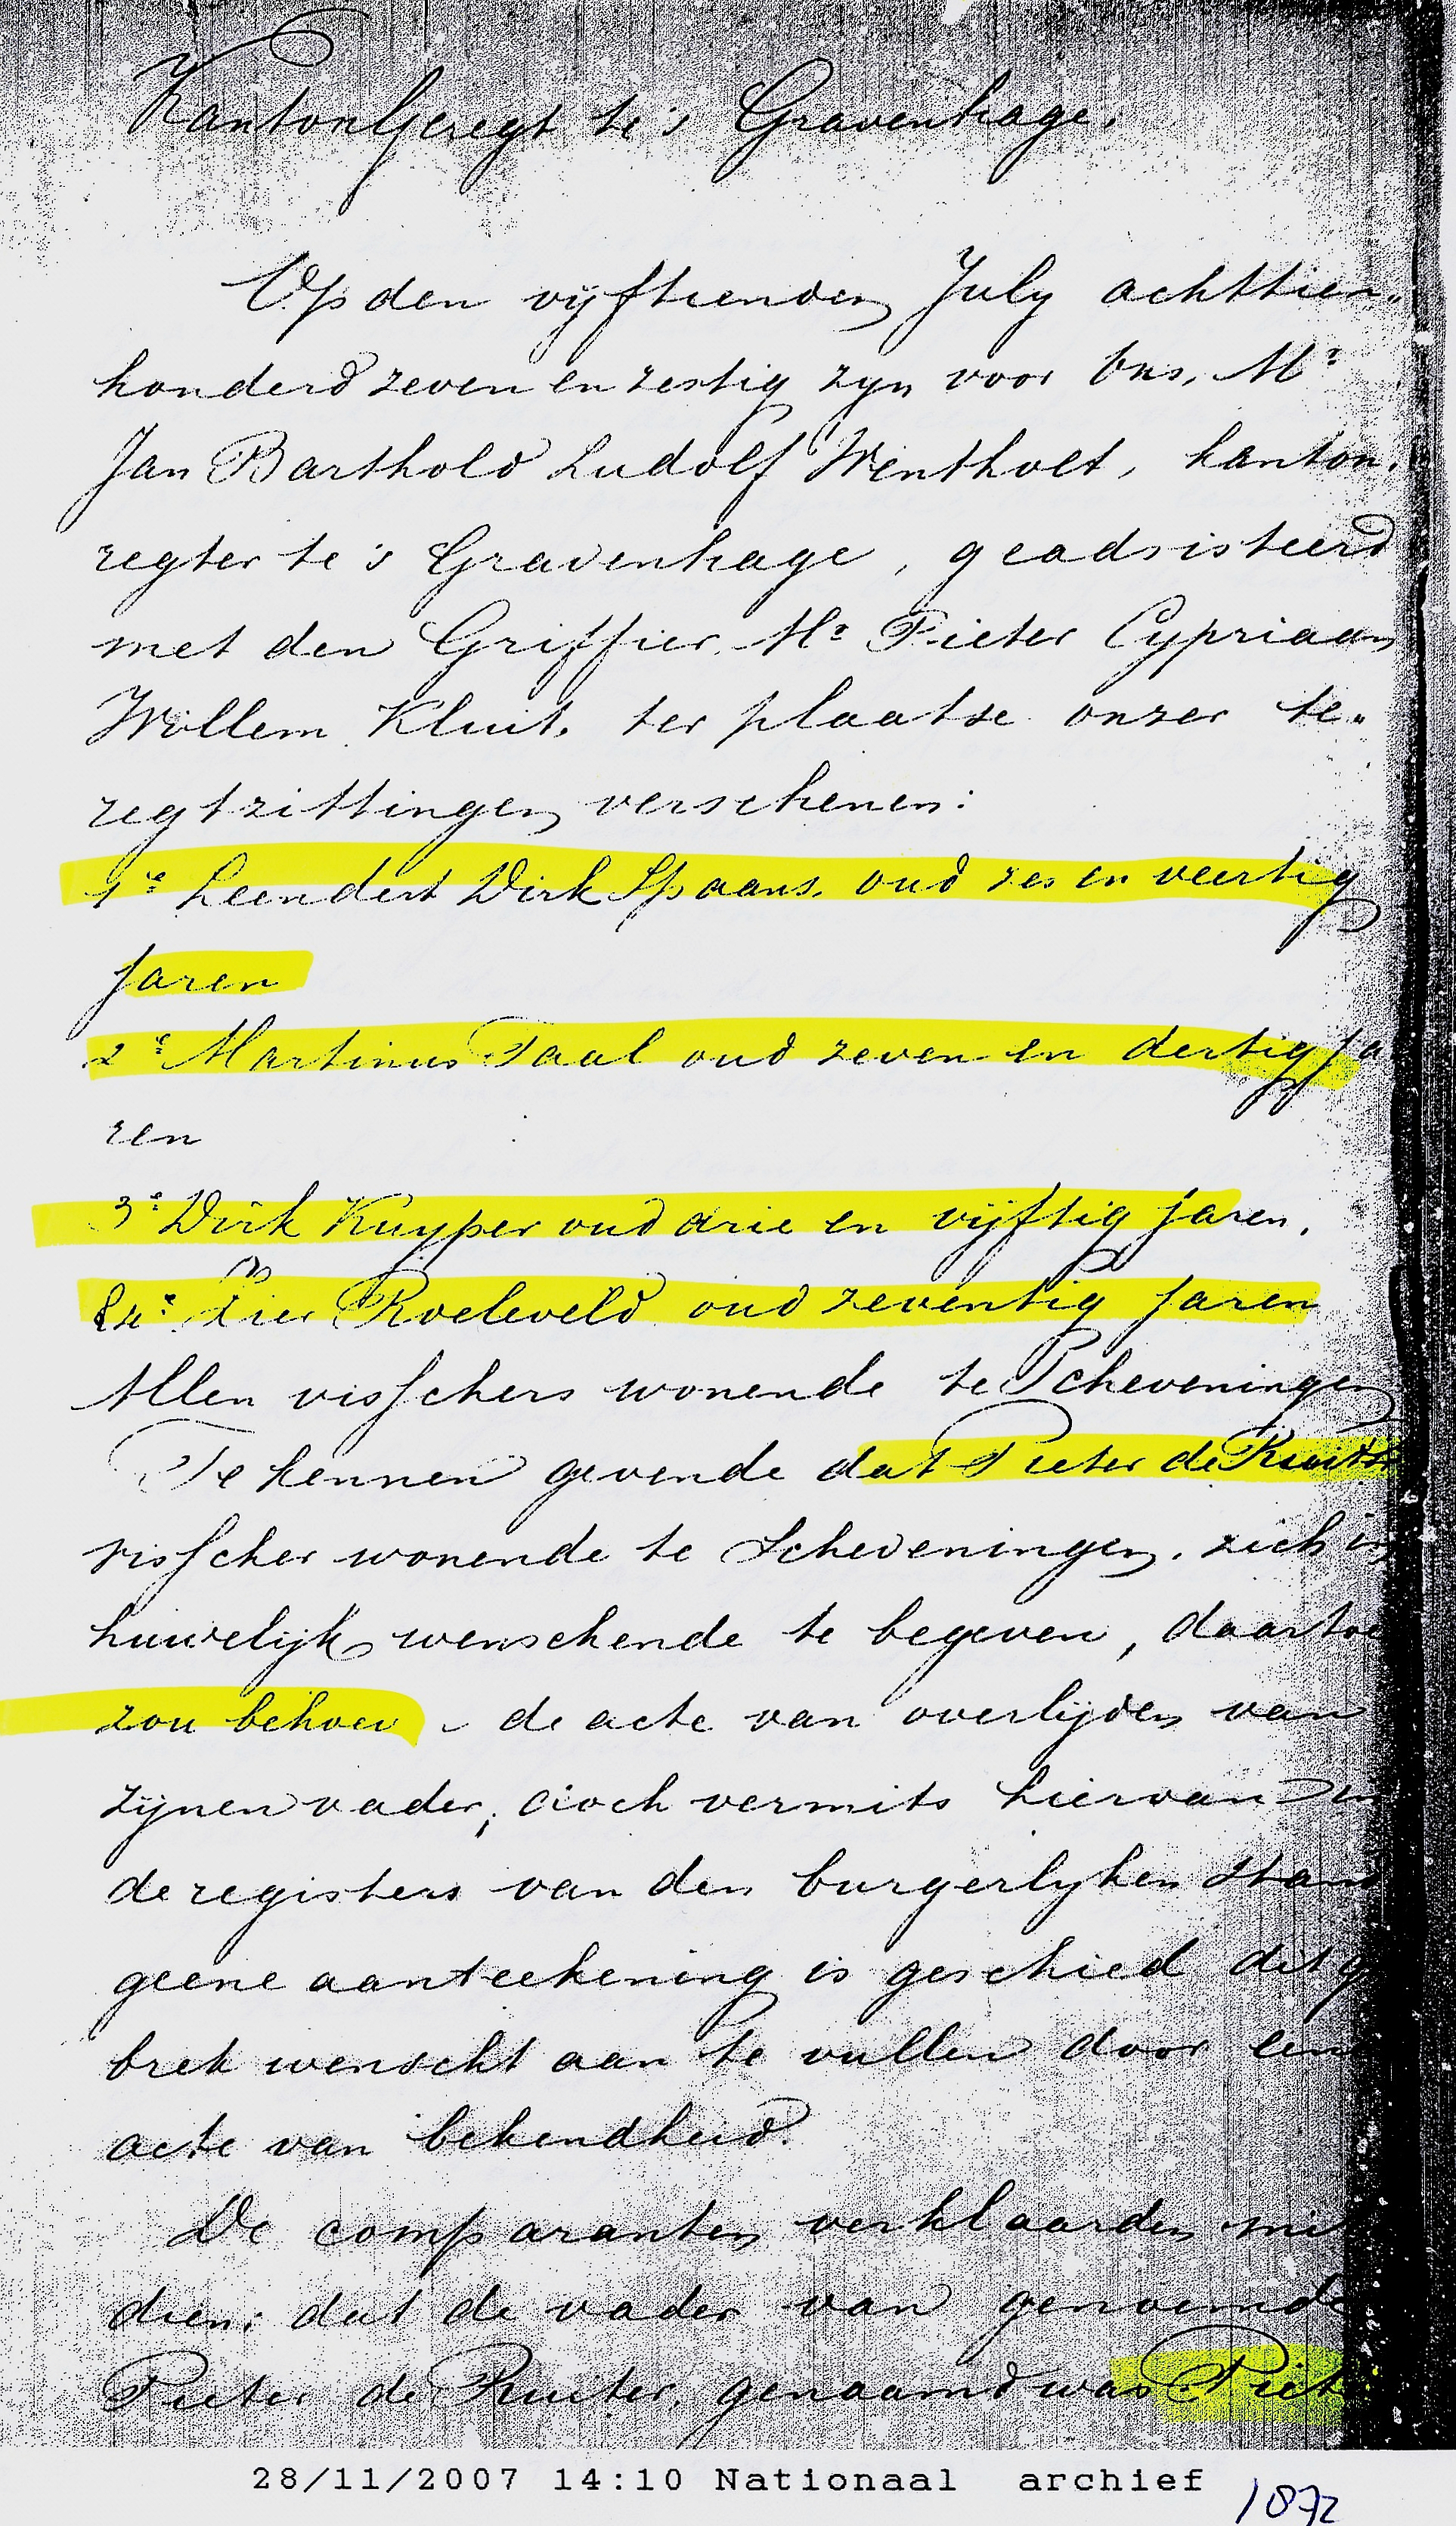 KantonGeregt te 's Gravenhage.
Op den vijftienden July achttien„
honderd zeven en zestig zyn voor Ons, Mr
Jan Barthold Ludolf Wentholt, kanton„
regter te 's Gravenhage, geadsisteerd
met den Griffier Mr Pieter Cypriaan
Willem Kluit, ter plaatse onzer te„
regtzittingen verschenen:
1e Leendert Dirk Spaans, oud zes en veertig
jaren
2e Martinus Taal oud zeven en dertig ja
ren
3e Dirk Kuyper oud drie en vijftig jaren,
& 4e Roeleveld oud zeventig jaren
Allen visschers wonende te Scheveningen
Te kennen gevende dat Pieter de Ruiter
visscher wonende te Scheveningen, zich in
huwelijk wenschende te begeven, daartoe
zou behoev de acte van overlijden van
zijnen vader, doch vermits hiervan in
de registers van den burgerlyken stand
geene aanteekening is geschied dit g
brek wenscht aan te vullen door eene
acte van bekendheid.
De comparanten verklaarden mits
dien: dat de vader van genoemde
Pieter de Ruiter, genaamd was Piet
28/11/2007 14:10 Nationaal archief
1872